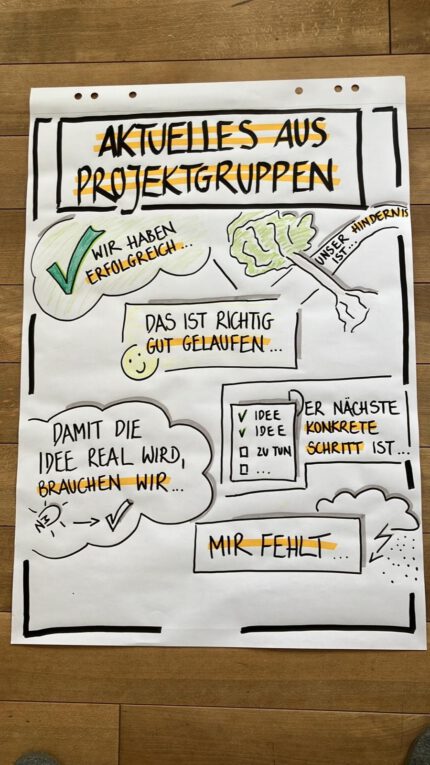 AKTUELLES AUS
PROJEKTGRUPPEN
WIR HABEN
ERFOLGREICH...
UNSER HINDERNIS
IST...
DAS IST RICHTIG
GUT GELAUFEN...
DAMIT DIE
IDEE REAL WIRD,
BRAUCHEN WIR...
✓ IDEE
✓ IDEE
☐ ZU TUN
☐ ...
ER NÄCHSTE
KONKRETE
SCHRITT IST...
MIR FEHLT...